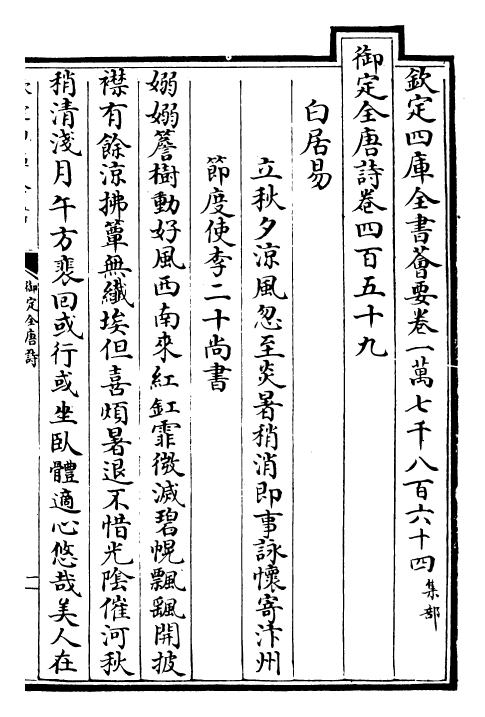 欽定四庫全書薈要卷一萬七千八百六十四 集部
御定全唐詩卷四百五十九
白居易
立秋夕涼風忽至炎暑稍消即事詠懷寄汴州
節度使李二十尚書
嫋嫋簷樹動好風西南來紅釭霏微滅碧幌飄颻開披
襟有餘涼拂簟無纖埃但喜煩暑退不惜光陰催河秋
稍清淺月午方裴回或行或坐臥體適心悠哉美人在
御定全唐詩
一